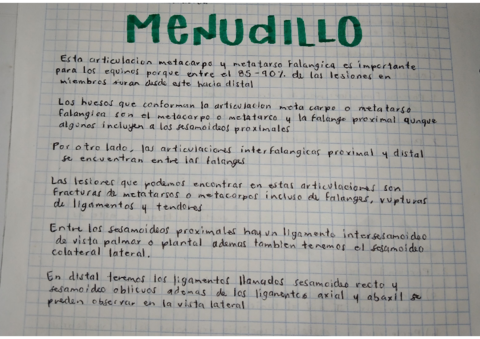 MENUDILLO
Esta articulacion metacarpo y metatarso falangica es importante
para los equinos porque entre el 85-90% de las lesiones en
miembros desde este hacia distal
Los huesos que conforman la articulacion meta carpo o metatarso
falangica son el metacarpo o metatarso y la falange proximal aunque
algunos incluyen a los sesamoideos proximales
Por otro lado, las articulaciones interfalangicas proximal y distal
se encuentran entre las falanges
Las lesiones que podemos encontrar en estas articulaciones son
fracturas de metatarsos o metacarpos incluso de falanges, rupturas
de ligamentos y tendones
Entre los sesamoideos proximales hay un ligamento intersesamoideo
de vista palmar o plantal ademas tambien tenemos el sesamoideo
colateral lateral.
En distal tenemos los ligamentos llamados sesamoideo recto y
sesamoideo oblicuos ademas de los ligamentos axial y abaxil se
pueden observar en la vista lateral